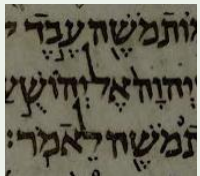 וֹת מֹשֶׁה עֶבֶד
יְהוָה אֶל יְהוֹשֻׁ
ת מֹשֶׁה לֵאמֹר׃